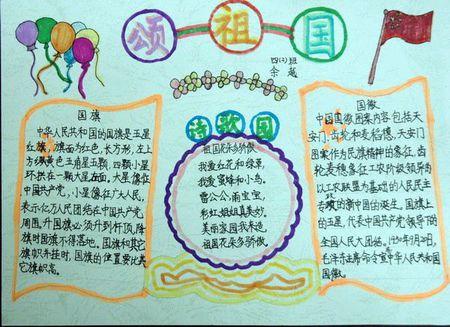 颂祖国
四(2)班
余越
国旗
中华人民共和国的国旗是五星
红旗,旗面为红色,长方形,左上
方缀黄色五角星五颗,四颗小星
环拱在一颗大星在面。大星像征
中国共产党,小星像征广大人民,
表示亿万人民团结在中国共产党
周围。升国旗必须升到杆顶,降
旗时国旗不得落地。国旗和其它
旗帜并挂时,国旗的位置要比其
它旗帜高。
诗歌园
祖国花朵多骄傲
我爱红花和绿草,
我爱蜜蜂和小鸟。
雷公公,雨宝宝,
彩虹姐姐真美妙。
美丽家园我来造,
祖国花朵多骄傲。
国徽
中国国徽图案内容包括天
安门、齿轮和麦稻穗,天安门
图案作为民族精神的象征,齿
轮麦穗象征工家阶级领导的
以工农联盟为基础的人民民主
专政的新中国的诞生。国旗上
的五星,代表中国共产党领导下的
全国人民大团结。1950年9月20日,
毛泽东主席命令宣华人民共和国
国徽。